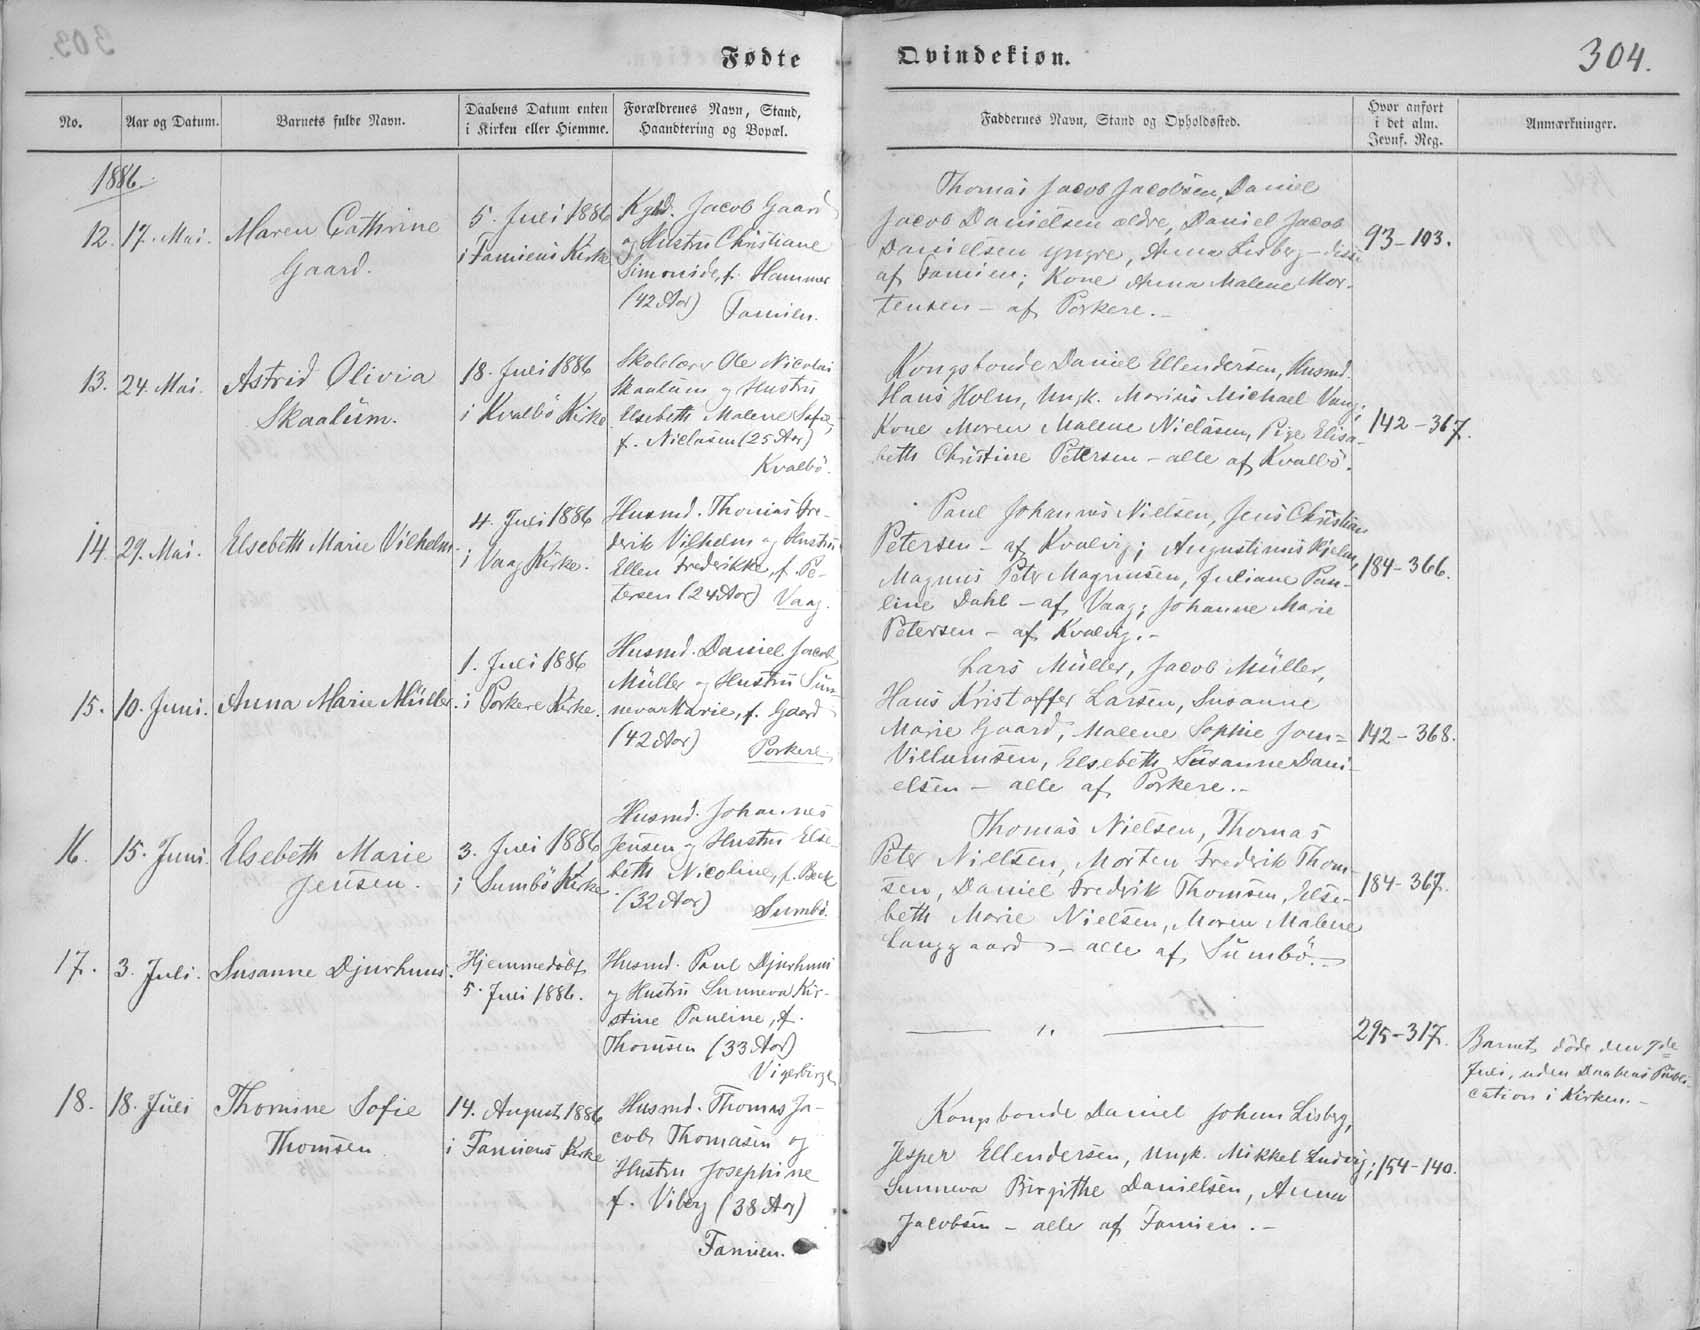 Fødte
Qvindekiøn.
304.
No.
Aar og Datum.
Barnets fulde Navn.
Daabens Datum enten
i Kirken eller Hiemme.
Forældrenes Navn, Stand,
Haandtering og Bopæl.
Faddernes Navn, Stand og Opholdssted.
Hvor anført
i det alm.
Jevnf. Reg.
Anmærkninger.
1886.
12.
17. Mai.
Maren Cathrine
Gaard.
5. Juli 1886
i Famiens Kirke
Kgbd. Jacob Gaard
og Hustru Christiane
Simonide, f. Hammer
(42 Aar)
Famien.
Thomas Jacob Jacobsen, Daniel
Jacob Danielsen ældre, Daniel Jacob
Danielsen yngre, Anna Lisberg - disse
af Famien; Kone Anna Malene Mor-
tensen - af Porkere. -
93-103.
13.
24. Mai.
Astrid Olivia
Skaalum.
18. Juli 1886
i Kvalbö Kirke
Skolelærer Ole Nicolai
Skaalum og Hustru
Elsebeth Malene Sofie,
f. Niclasen (25 Aar)
Kvalbö.
Kongsbonde Daniel Ellendersen, Husmd.
Hans Holm, Ungk. Marius Michael Vang;
Kone Maren Malene Niclasen, Pige Elisa-
beth Christine Petersen - alle af Kvalbö.
142-367.
14.
29. Mai.
Elsebeth Marie Vilhelm.
4. Juli 1886
i Vaag Kirke.
Husmd. Thomas Fre-
derik Vilhelm og Hustru
Ellen Frederikke, f. Pe-
tersen (24 Aar) Vaag.
Paul Johannes Nielsen, Jens Christian
Petersen - af Kvalvig; Augustinus Kjelm,
Magnus Peter Magnussen, Juliane Pau-
line Dahl - af Vaag; Johanne Marie
Petersen - af Kvalvig. -
184-366.
15.
10. Juni.
Anna Marie Müller.
1. Juli 1886
i Porkere Kirke.
Husmd. Daniel Jacob
Müller og Hustru Sun-
neva Marie, f. Gaard
(42 Aar)
Porkere.
Lars Müller, Jacob Müller,
Hans Kristoffer Larsen, Susanne
Marie Gaard, Malene Sophie Jom=
Villumsen, Elsebeth Susanne Dani-
elsen - alle af Porkere. -
142-368.
16.
15. Juni.
Elsebeth Marie
Jensen.
3. Juli 1886
i Sumbö Kirke
Husmd. Johannes
Jensen og Hustru Else-
beth Nicoline, f. Beck
(32 Aar)
Sumbö.
Thomas Nielsen, Thomas
Peter Nielsen, Morten Fredrik Thom-
sen, Daniel Fredrik Thomsen, Else-
beth Marie Nielsen, Maren Malene
Langgaard - alle af Sumbö. -
184-367.
17.
3. Juli.
Susanne Djurhuus.
Hjemmedøbt
5. Juli 1886.
Husmd. Paul Djurhuus
og Hustru Sunneva Kir-
stine Pauline, f.
Thomsen (33 Aar)
Vigerbirge
— ". —
295-317.
Barnet døde den 7de
Juli, uden Daabens Publi-
cation i Kirken. -
18.
18. Juli
Thomine Sofie
Thomsen
14. August 1886
i Famiens Kirke
Husmd. Thomas Ja-
cob Thomasen og
Hustru Josephine
f. Viberg (38 Aar)
Famien.
Kongsbonde Daniel Johan Lisberg,
Jesper Ellendersen, Ungk. Mikkel Ludvig;
Sunneva Birgithe Danielsen, Anna
Jacobsen - alle af Famien. -
154-140.